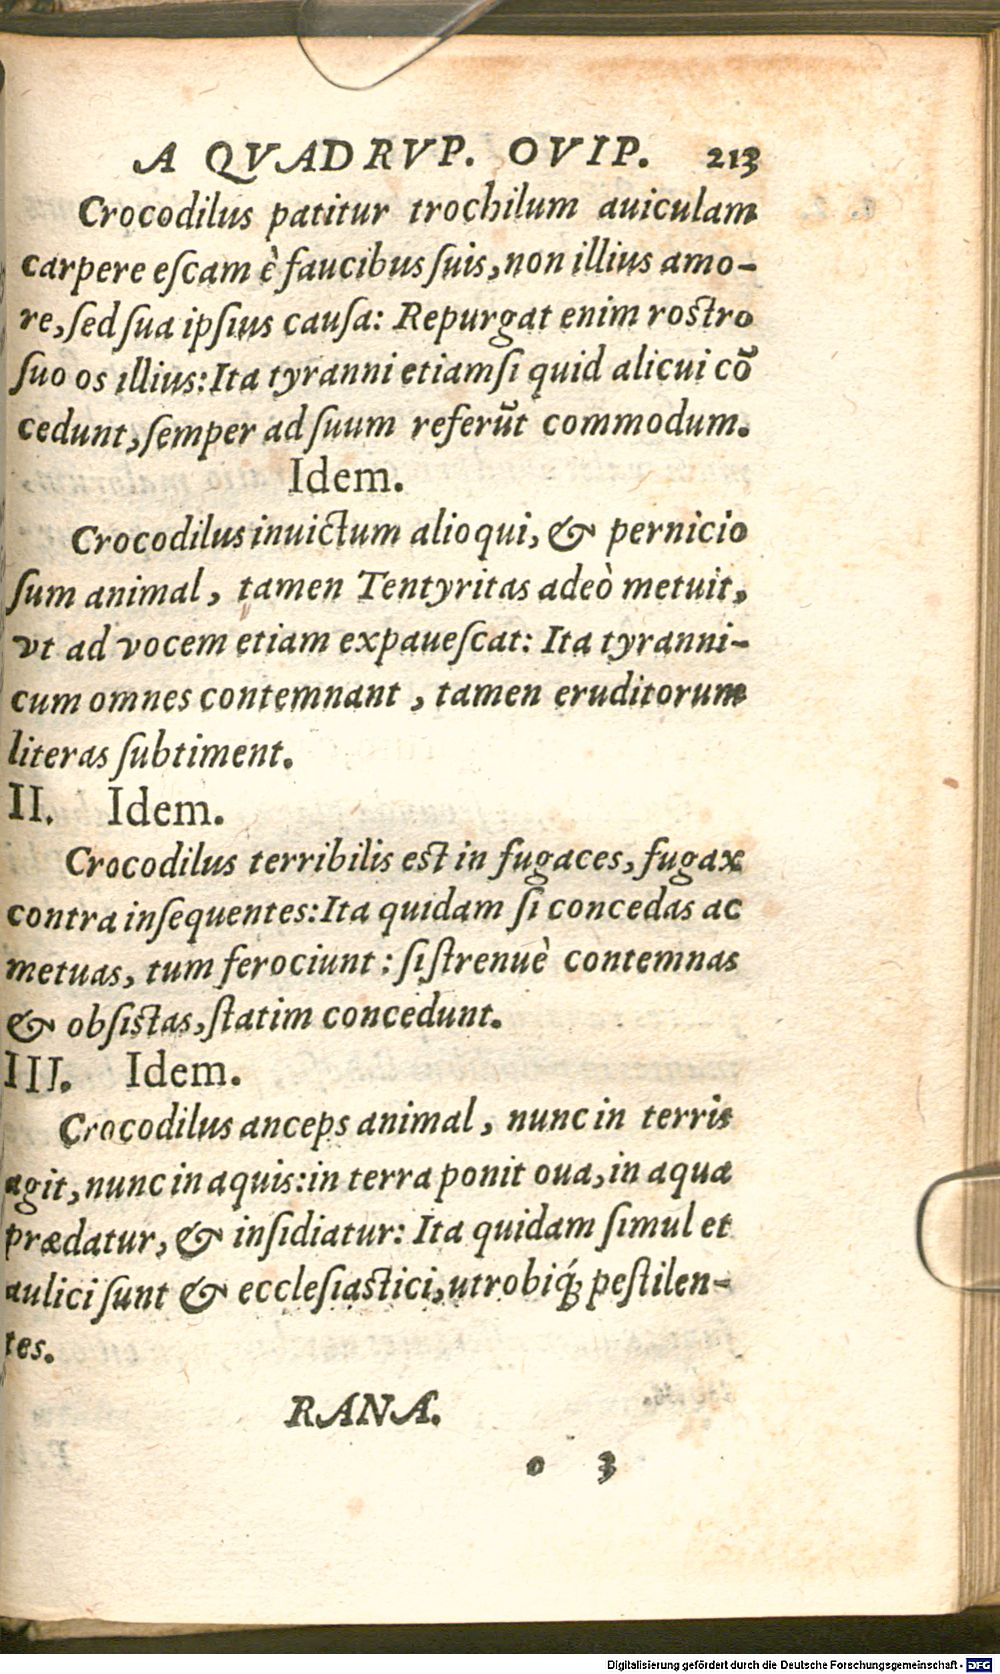 A QVADRVP. OVIP. 213
Crocodilus patitur trochilum auiculam
carpere eſcam è faucibus ſuis, non illius amo-
re, ſed ſua ipſius cauſa: Repurgat enim roſtro
ſuo os illius: Ita tyranni etiamſi quid alicui cō
cedunt, ſemper ad ſuum referūt commodum.
Idem.
Crocodilus inuictum alioqui, & pernicio
ſum animal, tamen Tentyritas adeò metuit,
vt ad vocem etiam expaueſcat: Ita tyranni-
cum omnes contemnant, tamen eruditorum
literas ſubtiment.
II. Idem.
Crocodilus terribilis eſt in fugaces, fugax
contra inſequentes: Ita quidam ſi concedas ac
metuas, tum ferociunt: ſi ſtrenuè contemnas
& obſiſtas, ſtatim concedunt.
III. Idem.
Crocodilus anceps animal, nunc in terris
agit, nunc in aquis: in terra ponit oua, in aqua
prædatur, & inſidiatur: Ita quidam ſimul et
aulici ſunt & eccleſiaſtici, utrobiq́; peſtilen-
tes.
RANA.
o 3
Digitalisierung gefördert durch die Deutsche Forschungsgemeinschaft - DFG